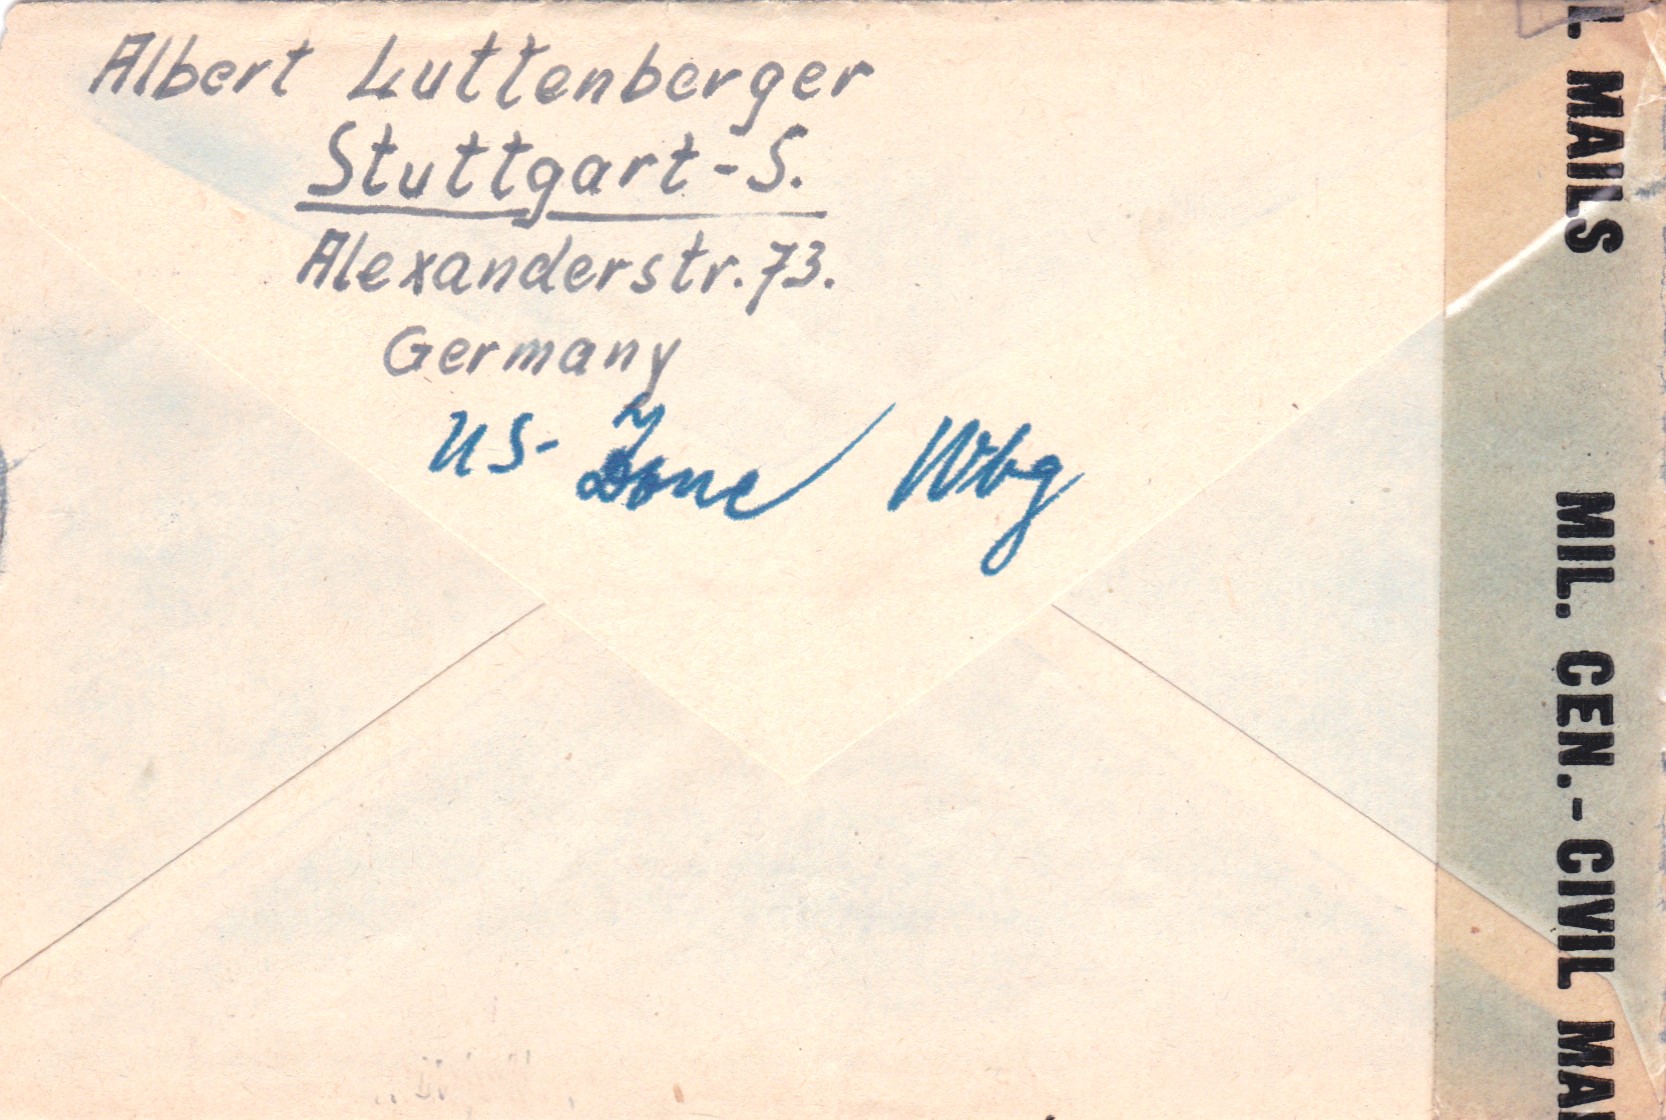 Albert Luttenberger
Stuttgart-S.
Alexanderstr. 73.
Germany
US-Zone Wbg
L MAILS
MIL. CEN.-CIVIL MAI